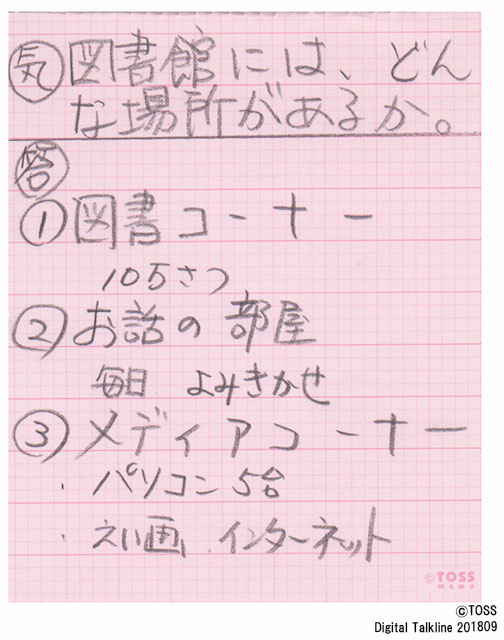 気 図書館には、どん
な場所があるか。
答
① 図書コーナー
105さつ
② お話の部屋
毎日 よみきかせ
③ メディアコーナー
・パソコン5台
・えい画 インターネット
©TOSS
memo
©TOSS
Digital Talkline 201809